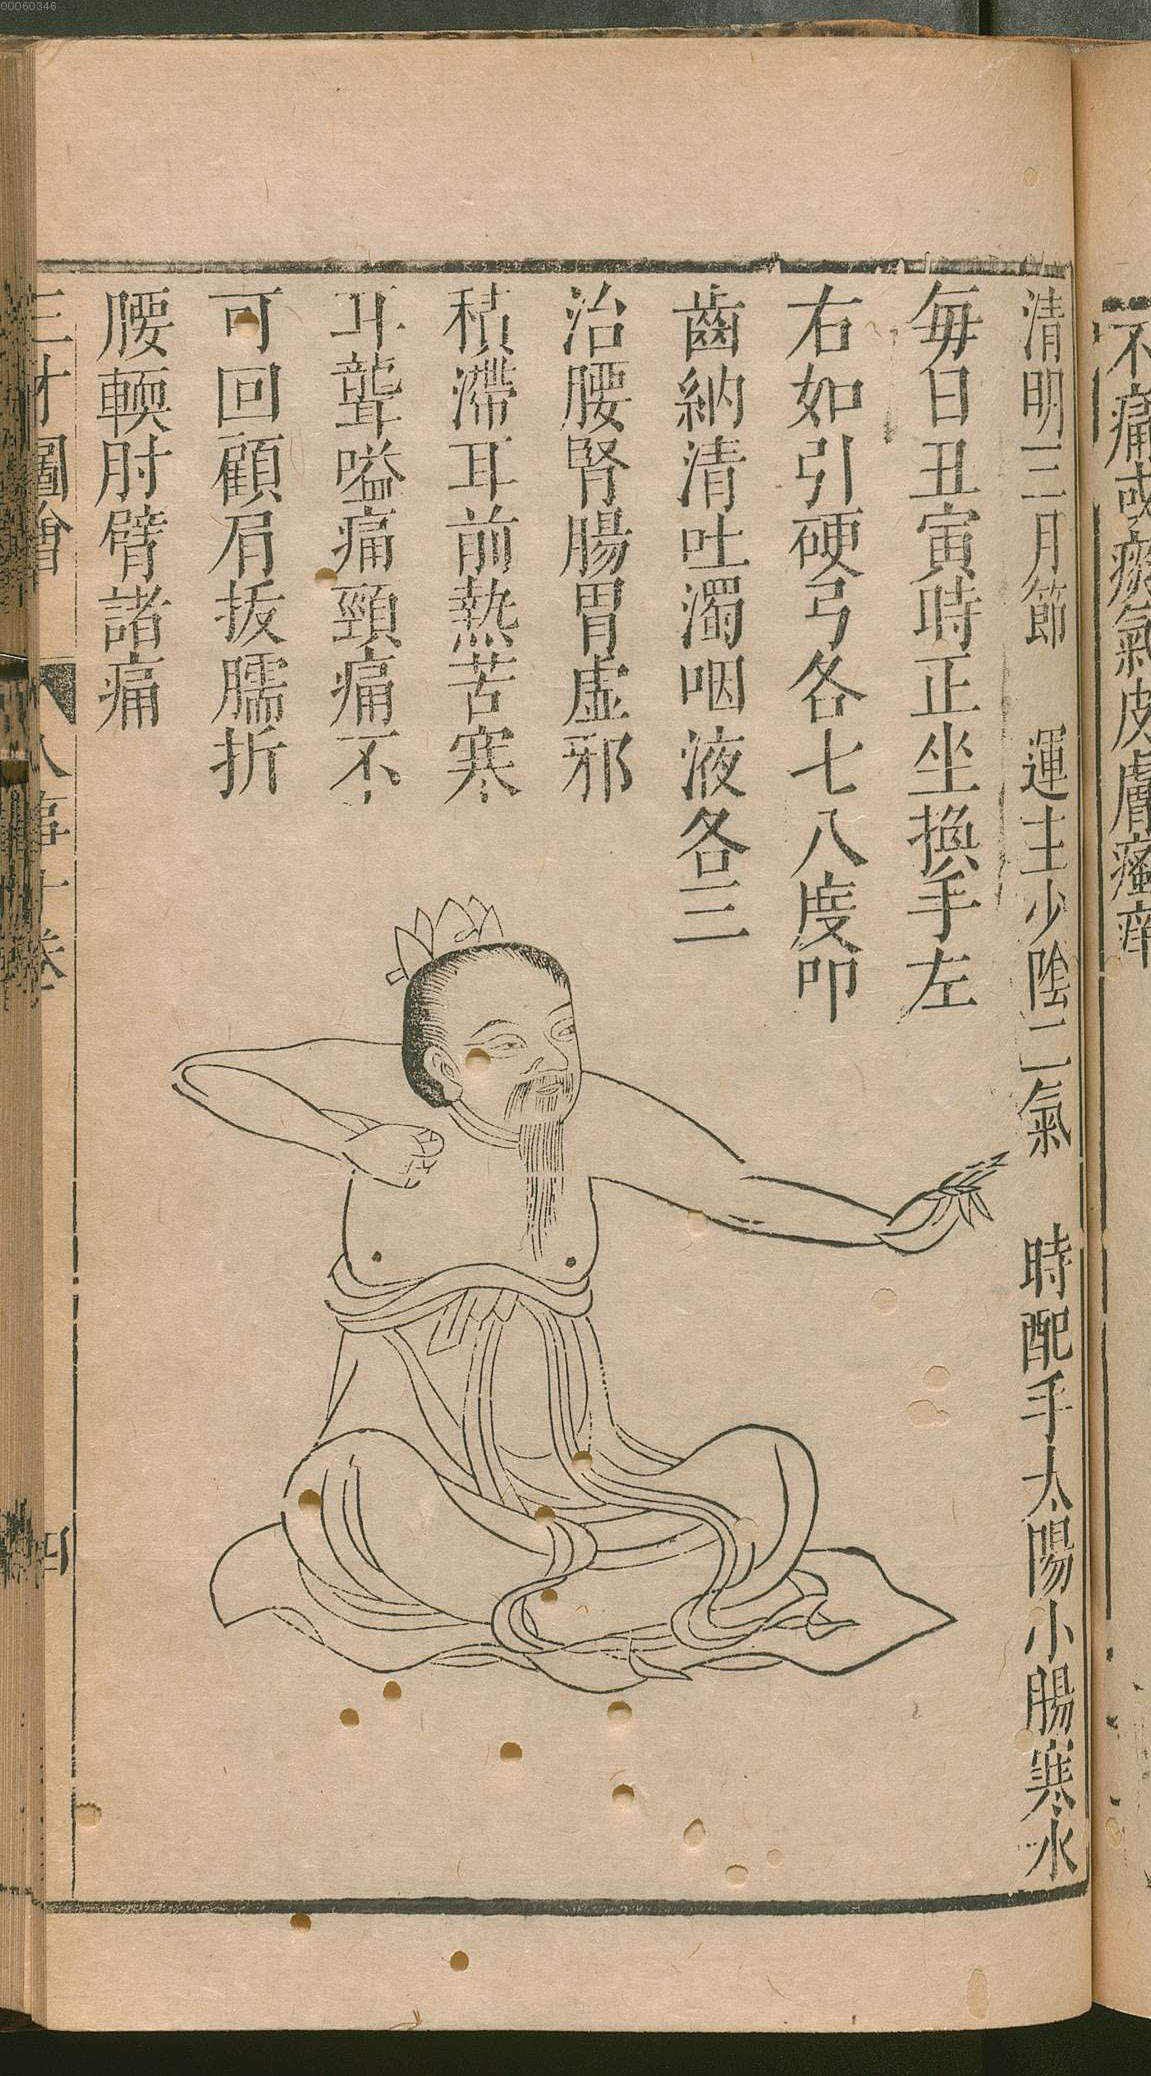 00060346
不痛或瘀氣皮膚瘙痒
清明三月節 運主少陰二氣 時配手太陽小腸寒水
每日丑寅時正坐換手左
右如引硬弓各七八度叩
齒納清吐濁咽液各三
治腰腎腸胃虛邪
積滯耳前熱苦寒
耳聾嗌痛頸痛不
可回顧肩拔臑折
腰輭肘臂諸痛
三才圖會 人事十卷 四